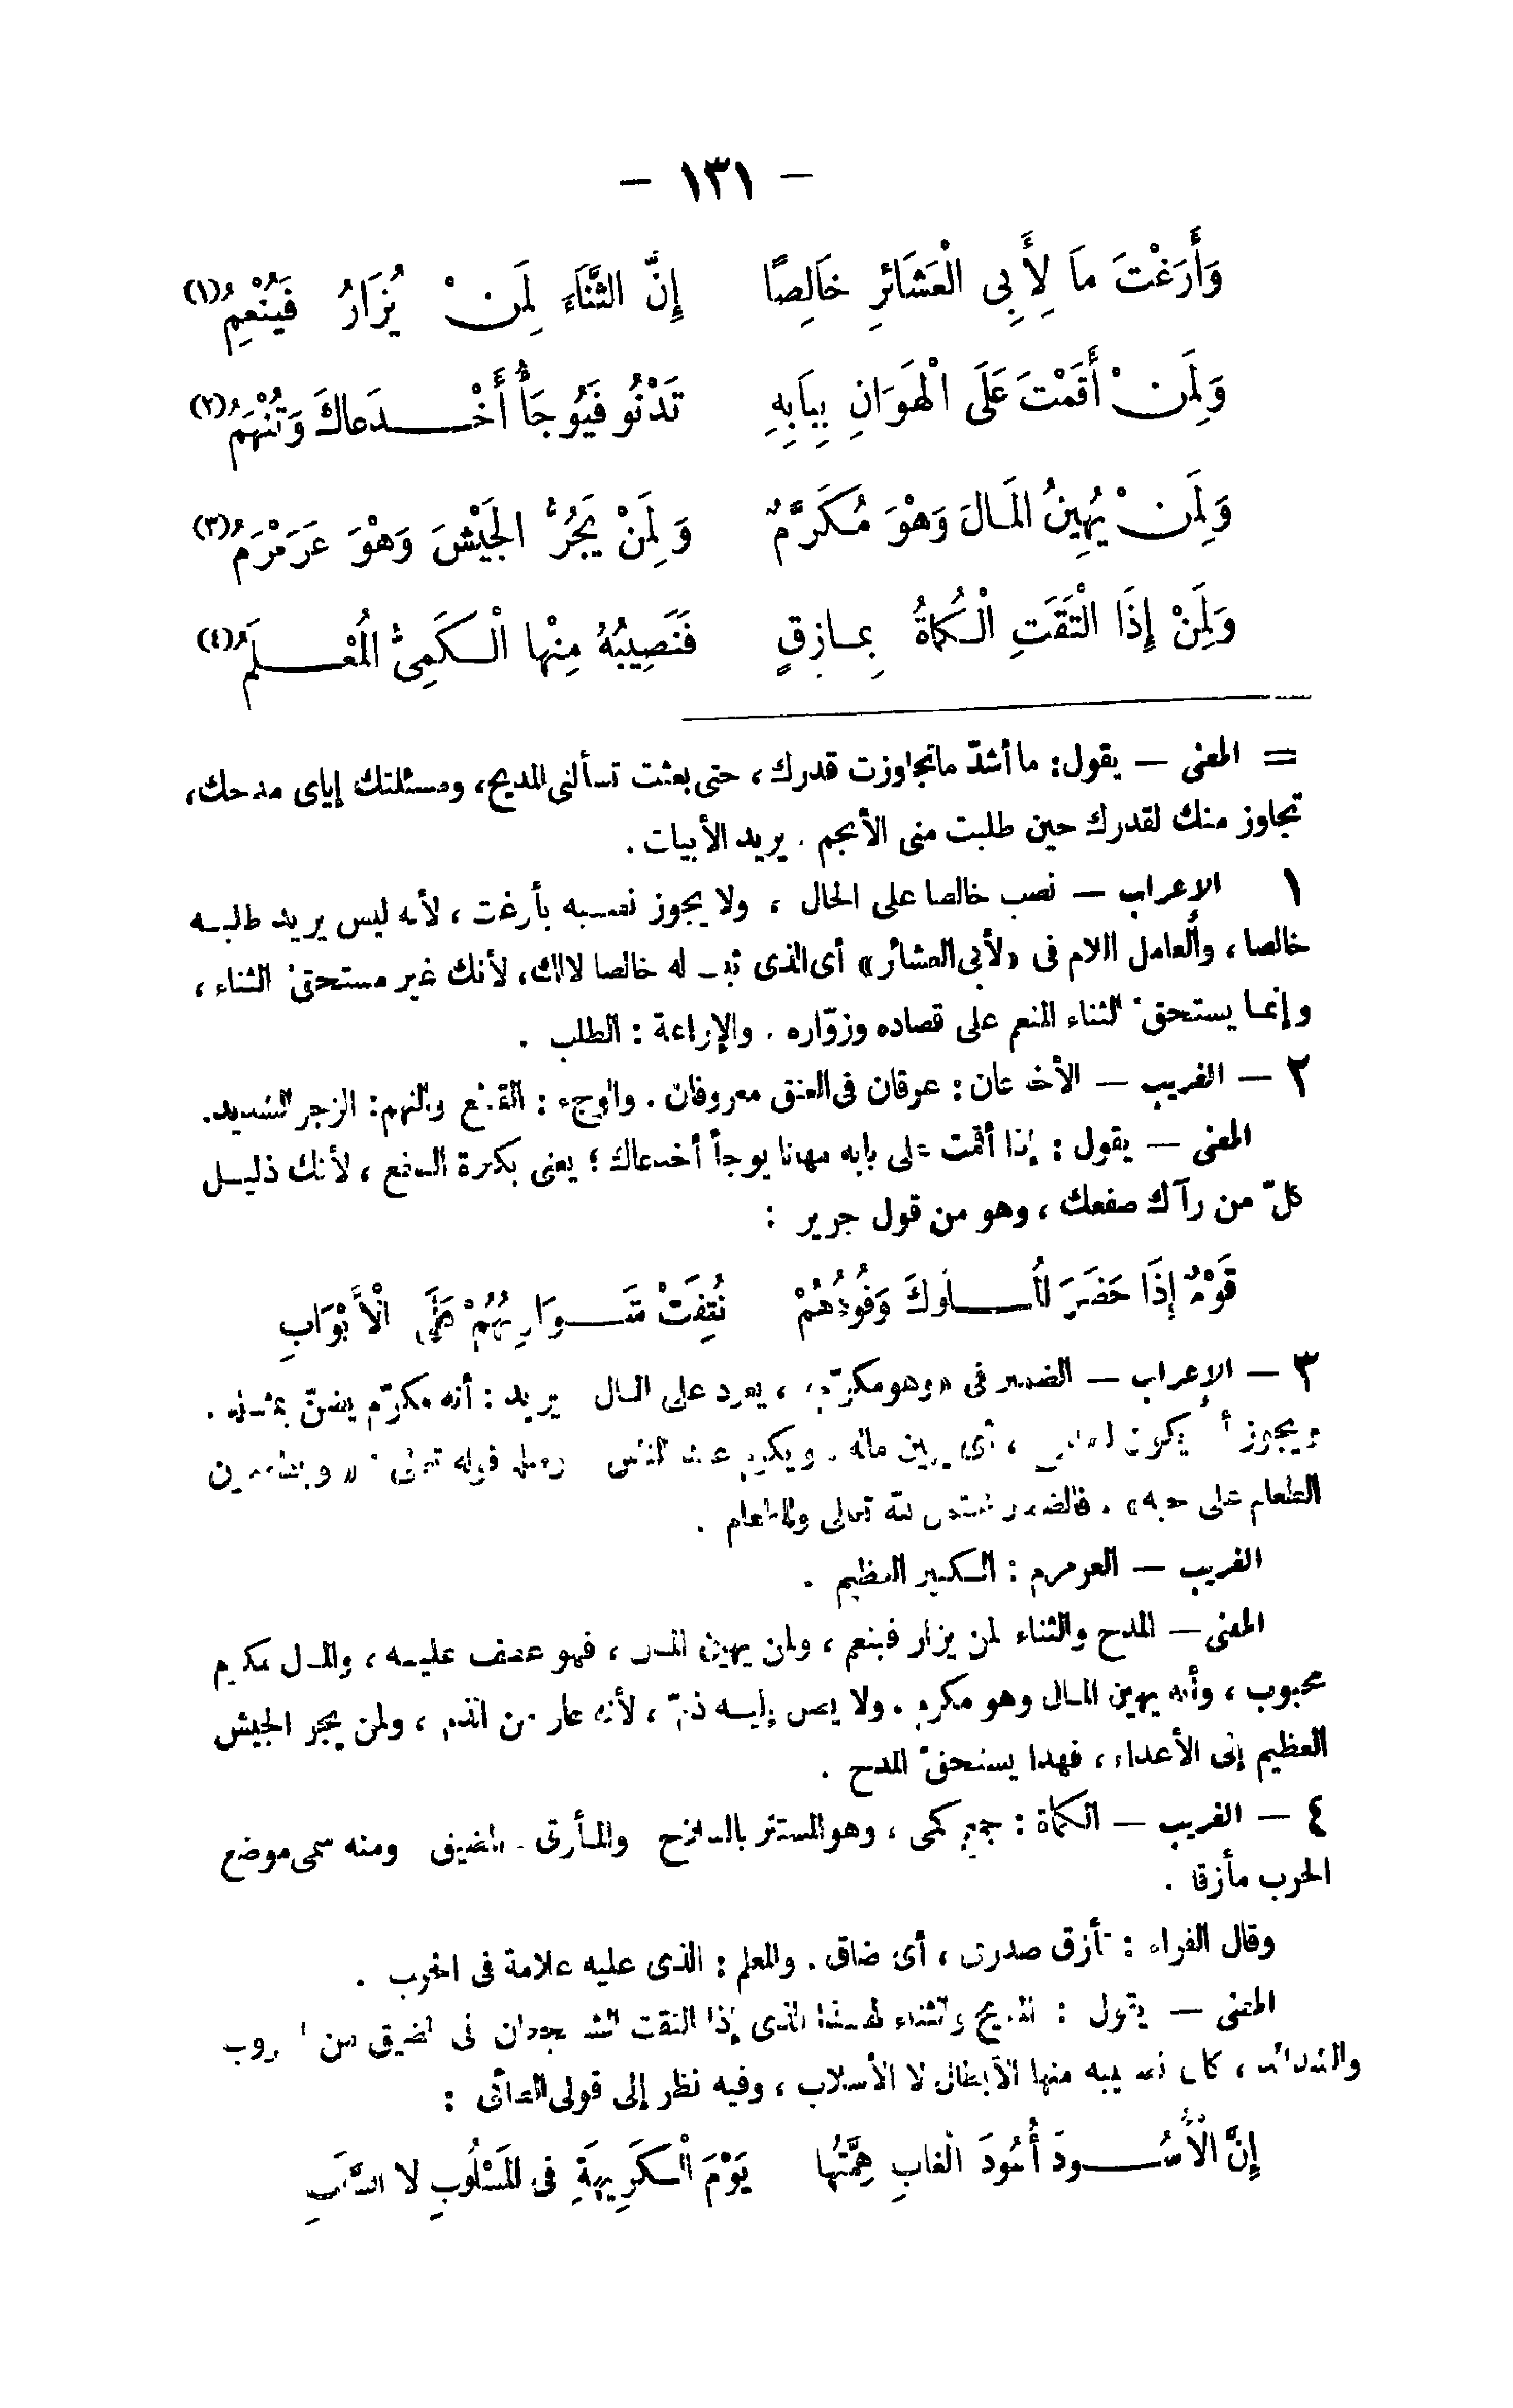 – ١٣١ –
وَأَرَغْتَ مَا لِأَبِى الْعَشَائرِ خَالِصًا إِنَّ الثَّنَاءَ لِمَنْ يُزَارُ فَيُنْعِمُ(١)
وَلِمَنْ أَقَمْتَ عَلَى الْهَوَانِ بِبَابِهِ تَدْنُو فَيُوجَأُ أَخْدَعاكَ وَتُنْهَمُ(٢)
وَلِمَنْ يُهِينُ المَالَ وَهْوَ مُكَرَّمٌ وَلِمَنْ يَجُرُّ الجَيْشَ وَهْوَ عَرَمْرَمُ(٣)
وَلِمَنْ إِذَا الْتَقَتِ الْكُمَاةُ بِمَازِقٍ فَنَصِيبُهُ مِنْها الْكَمِىُّ المُعْلَمُ(٤)
= المعنى – يقول: ما أشدّ ماتجاوزت قدرك، حتى بعثت تسألنى المديح، ومسئلتك إياى مدحك،
تجاوز منك لقدرك حين طلبت منى الأنجم . يريد الأبيات .
١ الإعراب – نصب خالصا على الحال ، ولا يجوز نصبه بأرغت ، لأنه ليس يريد طلبه
خالصا ، والعامل اللام فى «لأبى العشائر» أى الذى له خالصا لا لك، لأنك غير مستحقّ الثناء ،
وإنما يستحقّ الثناء المنعم على قصاده وزوّاره . والإراغة : الطلب .
٢ – الغريب – الأخدعان : عرقان فى العنق معروفان . والوجء : والنهم : الزجر الشديد.
المعنى – يقول : إذا أقمت على بابه مهانا يوجأ أخدعاك ؛ يعنى بكثرة الصفع ، لأنك ذليل
كلّ من رآك صفعك ، وهو من قول جرير :
قَوْمٌ إِذَا حَضَرَ المُلُوكَ وَفُودُهُمْ نُتِفَتْ شَوَارِبُهُمْ عَلَى الْأَبْوَابِ
٣ – الإعراب – الضمير فى «وهو مكرّم» ، يعود على المال يريد : أنه مكرّم يضنّ بمثله .
ويجوز أن يكون ، أى يهين ماله . ويكرم عند الناس قوله تعالى :
الطعام على حبه» . فالضمير لله تعالى وللطعام .
الغريب – العرمرم : الكبير العظيم .
المعنى – المدح والثناء لمن يزار فينعم ، ولمن يهين المال ، فهو عليه ، والمال مكرم
محبوب ، وأنه يهين المال وهو مكرم . ولا يصل إليه ذمّ ، لأنه عار من الذم ، ولمن يجر الجيش
العظيم إلى الأعداء ، فهذا يستحقّ المدح .
٤ – الغريب – الكماة : جمع كمى ، وهو المستتر بالسلاح والمأزق . المضيق ومنه سمى موضع
الحرب مأزقا .
وقال الفراء : تأزق صدرى ، أى ضاق . والمعلم : الذى عليه علامة فى الحرب .
المعنى – يقول : المديح والثناء لهذا الذى إذا التقت الشجعان فى المضيق من الحروب
والشدائد ، كان نصيبه منها الأبطال لا الأسلاب ، وفيه نظر إلى قول الطائى :
إِنَّ الْأُسُودَ أُسُودَ الْغابِ هِمَّتُها يَوْمَ الْكَرِيهَةِ فى المَسْلُوبِ لا السَّلَبِ